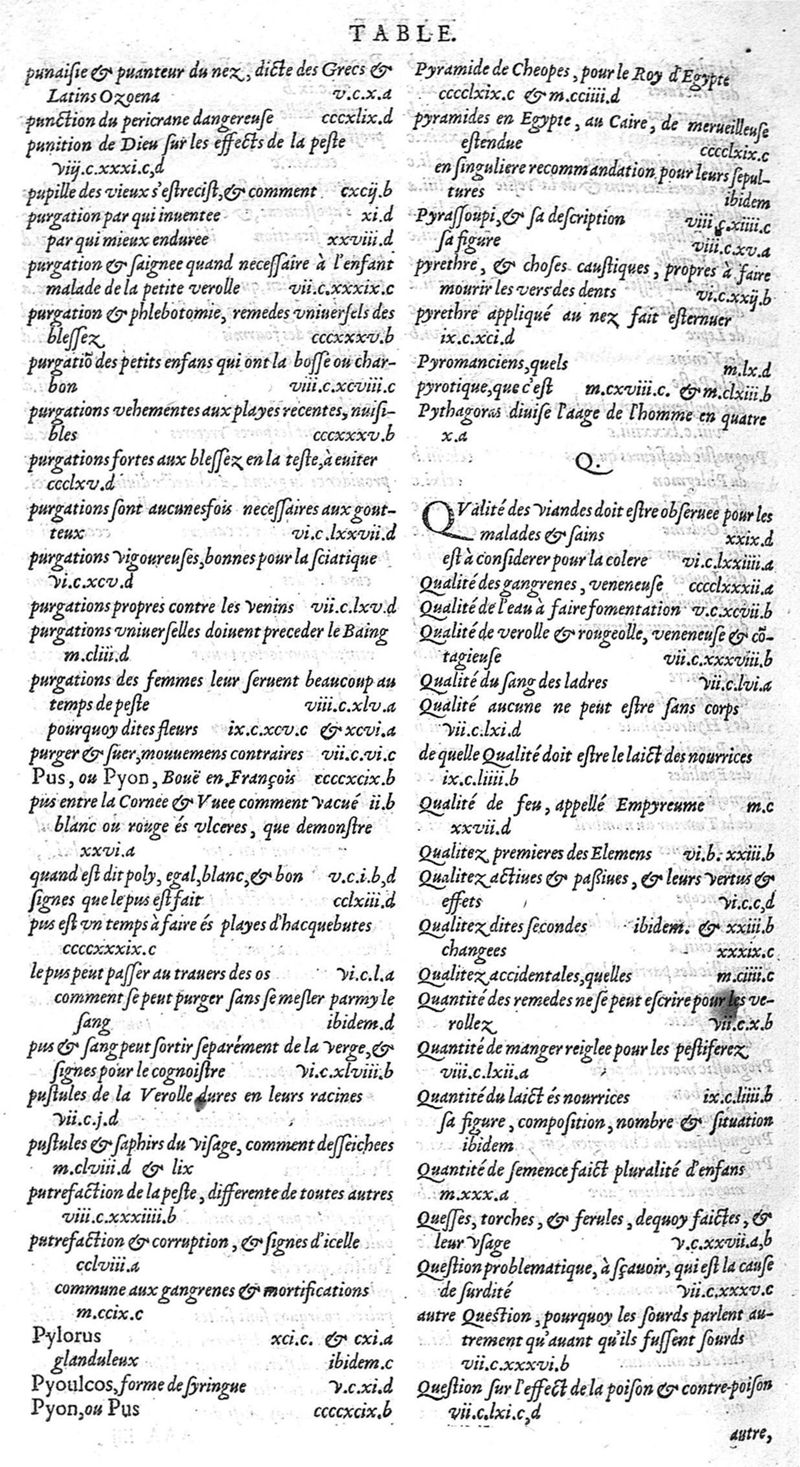 TABLE.
punaisie & puanteur du nez, dicte des Grecs &
Latins Ozoena v.c.x.a
punction du pericrane dangereuse cccxlix.d
punition de Dieu sur les effects de la peste
viij.c.xxxi.c,d
pupille des vieux s'estrecist, & comment cxcij.b
purgation par qui inuentee xi.d
par qui mieux enduree xxviii.d
purgation & saignee quand necessaire à l'enfant
malade de la petite verolle vii.c.xxxix.c
purgation & phlebotomie, remedes vniuersels des
blessez cccxxxv.b
purgatiõ des petits enfans qui ont la bosse ou char-
bon viii.c.xcviii.c
purgations vehementes aux playes recentes, nuisi-
bles cccxxxv.b
purgations fortes aux blessez en la teste, à euiter
ccclxv.d
purgations sont aucunesfois necessaires aux gout-
teux vi.c.lxxvii.d
purgations vigoureuses, bonnes pour la sciatique
vi.c.xcv.d
purgations propres contre les venins vii.c.lxv.d
purgations vniuerselles doiuent preceder le Baing
m.cliii.d
purgations des femmes leur seruent beaucoup au
temps de peste viii.c.xlv.a
pourquoy dites fleurs ix.c.xcv.c & xcvi.a
purger & suer, mouuemens contraires vii.c.vi.c
Pus, ou Pyon, Bouë en François ccccxcix.b
pus entre la Cornee & Vuee comment vacué ii.b
blanc ou rouge és vlceres, que demonstre
xxvi.a
quand est dit poly, egal, blanc, & bon v.c.i.b,d
signes que le pus est fait cclxiii.d
pus est vn temps à faire és playes d'hacquebutes
ccccxxxix.c
le pus peut passer au trauers des os vi.c.l.a
comment se peut purger sans se mesler parmy le
sang ibidem.d
pus & sang peut sortir separément de la verge, &
signes pour le cognoistre vi.c.xlviii.b
pustules de la Verolle dures en leurs racines
vii.c.j.d
pustules & saphirs du visage, comment desseichees
m.clviii.d & lix
putrefaction de la peste, differente de toutes autres
viii.c.xxxiiii.b
putrefaction & corruption, & signes d'icelle
cclviii.a
commune aux gangrenes & mortifications
m.ccix.c
Pylorus xci.c. & cxi.a
glanduleux ibidem.c
Pyoulcos, forme de syringue v.c.xi.d
Pyon, ou Pus ccccxcix.b
Pyramide de Cheopes, pour le Roy d'Egypte
cccclxix.c & m.cciiii.d
pyramides en Egypte, au Caire, de merueilleuse
estendue cccclxix.c
en singuliere recommandation pour leurs sepul-
tures ibidem
Pyrassoupi, & sa description viii.c.xiiii.c
sa figure viii.c.xv.a
pyrethre, & choses caustiques, propres à faire
mourir les vers des dents vi.c.xxij.b
pyrethre appliqué au nez fait esternuer
ix.c.xci.d
Pyromanciens, quels m.lx.d
pyrotique, que c'est m.cxviii.c. & m.clxiii.b
Pythagoras diuise l'aage de l'homme en quatre
x.a
Q.
QValité des viandes doit estre obseruee pour les
malades & sains xxix.d
est à considerer pour la colere vi.c.lxxiiii.a
Qualité des gangrenes, veneneuse cccclxxxii.a
Qualité de l'eau à faire fomentation v.c.xcvii.b
Qualité de verolle & rougeolle, veneneuse & cõ-
tagieuse vii.c.xxxviii.b
Qualité du sang des ladres vii.c.lvi.a
Qualité aucune ne peut estre sans corps
vii.c.lxi.d
de quelle Qualité doit estre le laict des nourrices
ix.c.liiii.b
Qualité de feu, appellé Empyreume m.c
xxvii.d
Qualitez premieres des Elemens vi.b. xxiii.b
Qualitez actiues & passiues, & leurs vertus &
effets vi.c.c,d
Qualitez dites secondes ibidem. & xxiii.b
changees xxxix.c
Qualitez accidentales, quelles m.ciiii.c
Quantité des remedes ne se peut escrire pour les ve-
rollez vii.c.x.b
Quantité de manger reiglee pour les pestiferez
viii.c.lxii.a
Quantité du laict és nourrices ix.c.liiii.b
sa figure, composition, nombre & situation
ibidem
Quantité de semence faict pluralité d'enfans
m.xxx.a
Quesses, torches, & ferules, dequoy faictes, &
leur vsage v.c.xxvii.a,b
Question problematique, à sçauoir, qui est la cause
de surdité vii.c.xxxv.c
autre Question, pourquoy les sourds parlent au-
trement qu'auant qu'ils fussent sourds
vii.c.xxxvi.b
Question sur l'effect de la poison & contre-poison
vii.c.lxi.c,d
autre,